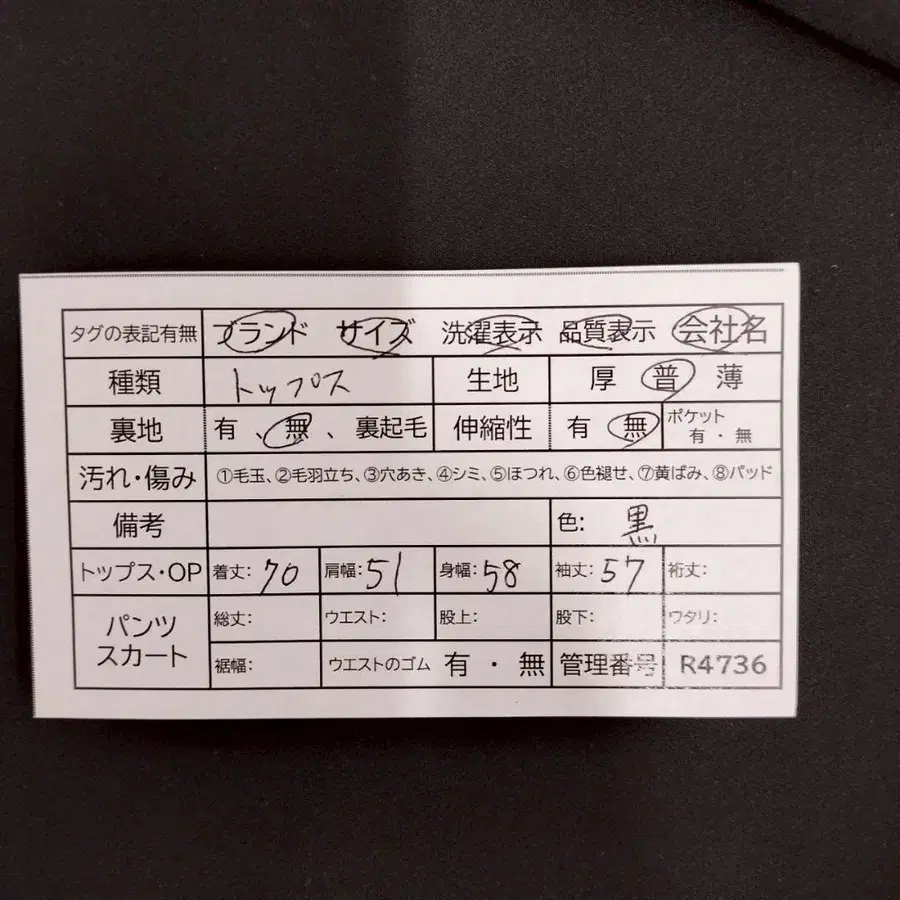 タグの表記有無 ブランド サイズ 洗濯表示 品質表示 会社名
種類 トップス 生地 厚 普 薄
裏地 有 、無 、裏起毛 伸縮性 有 無 ポケット 有・無
汚れ・傷み ①毛玉、②毛羽立ち、③穴あき、④シミ、⑤ほつれ、⑥色褪せ、⑦黄ばみ、⑧パッド
備考 色: 黒
トップス・OP 着丈: 70 肩幅: 51 身幅: 58 袖丈: 57 裄丈:
パンツ スカート 総丈: ウエスト: 股上: 股下: ワタリ:
裾幅: ウエストのゴム 有・無 管理番号 R4736